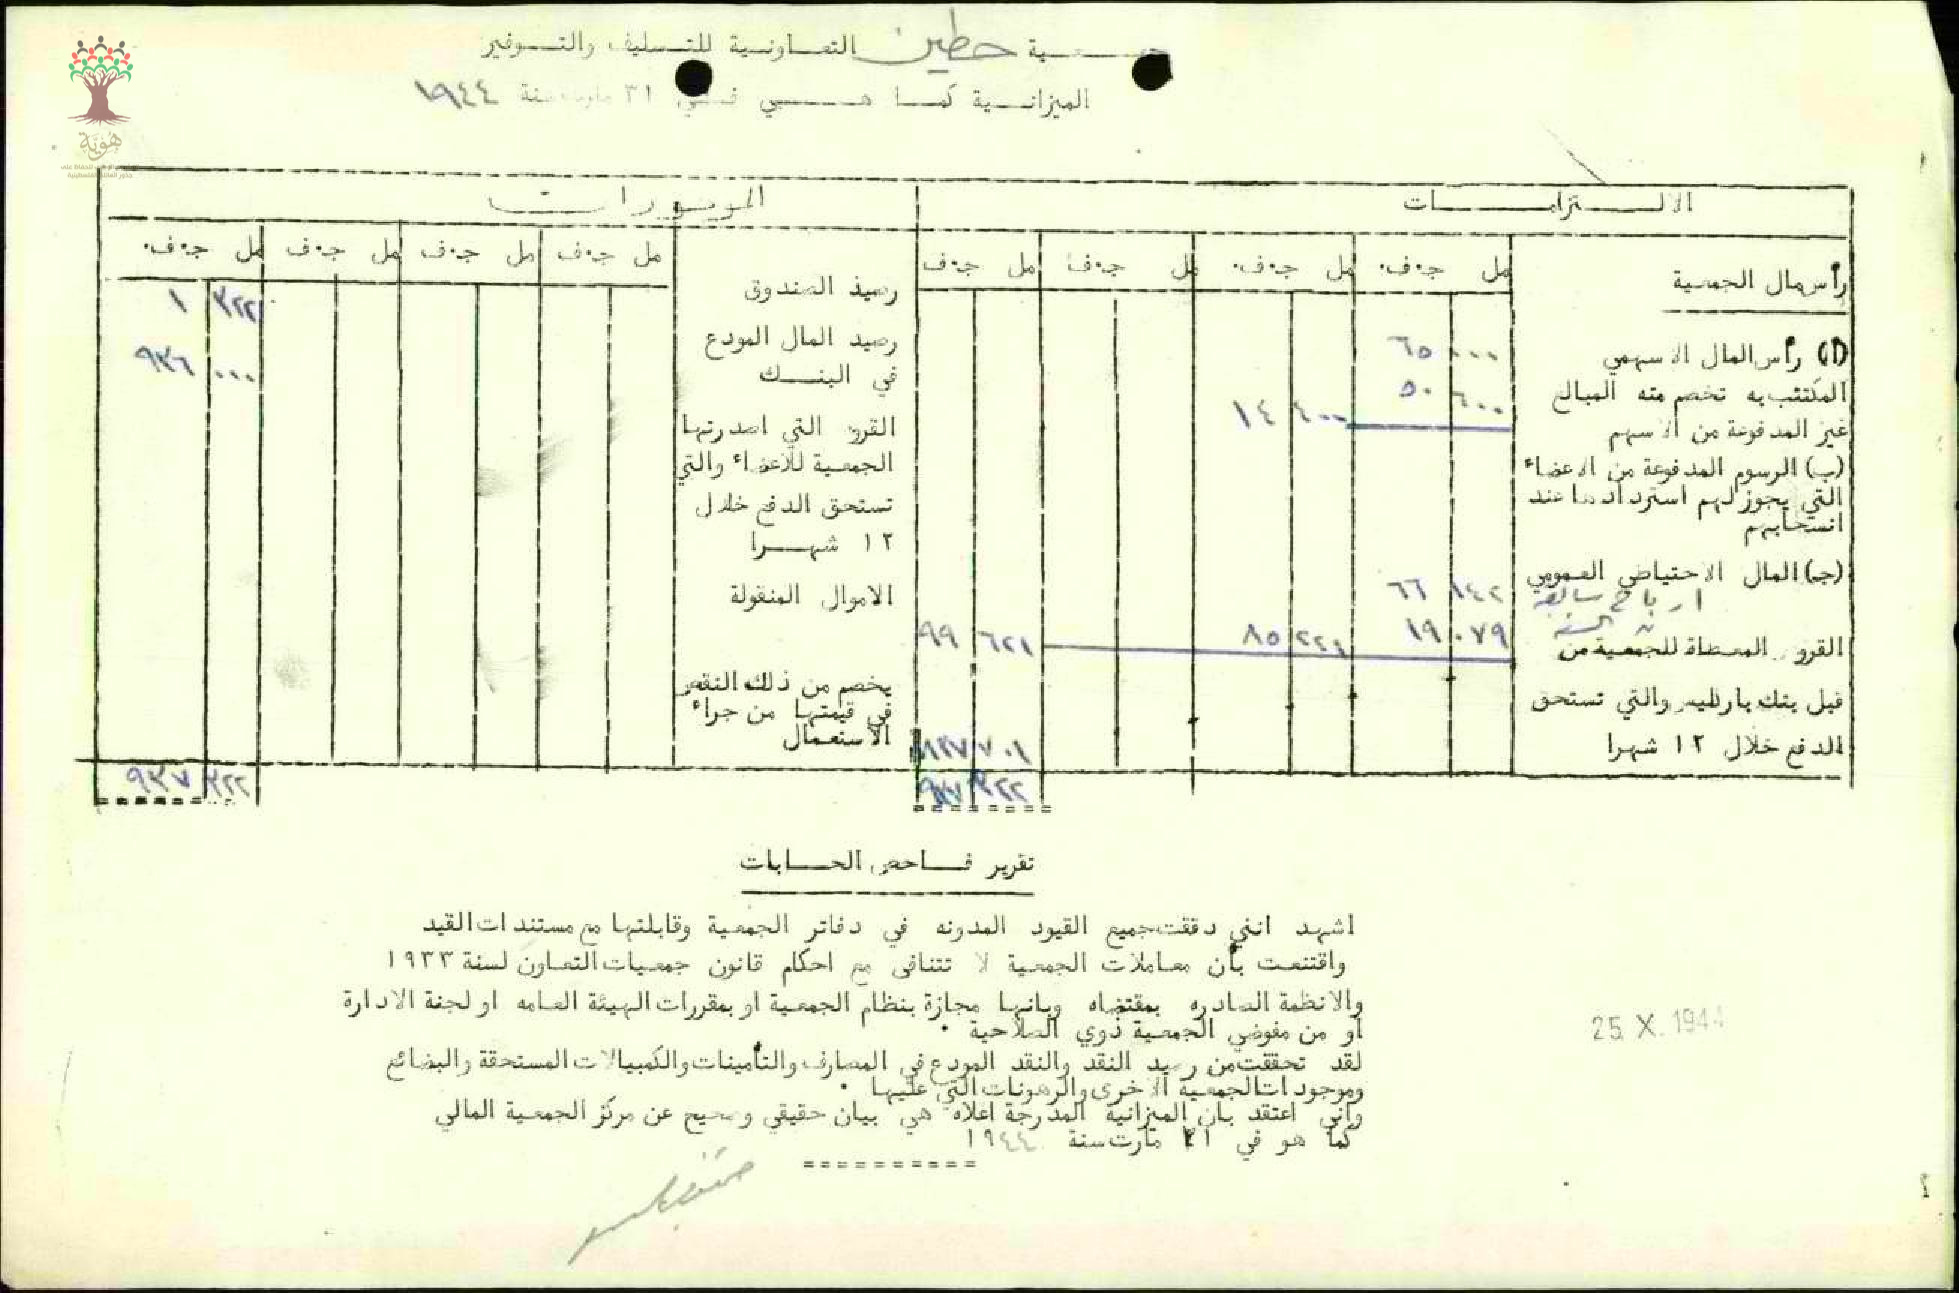 جمعية حطين التعاونية للتسليف والتوفير
الميزانية كما هي في ٣١ مارت سنة ١٩٤٤
هُوِيَّة
الالتزامات
مل ج.ف. مل ج.ف. مل ج.ف مل ج.ف
رأسمال الجمعية
(ا) رأس المال الاسهمي
٦٥ ٠٠٠
المكتتب به تخصم منه المبالغ
٥٠ ٦٠٠
غير المدفوعة من الاسهم
١٤ ٤٠٠
(ب) الرسوم المدفوعة من الاعضاء
التي يجوز لهم استردادها عند
انسحابهم
(جـ) المال الاحتياطي العمومي
٦٦ ١٤٢
ارباح سالفة
١٩ ٠٧٩
٨٥ ٢٢١
٩٩ ٦٢١
القروض المعطاة للجمعية من
قبل بنك باركليس والتي تستحق
الدفع خلال ١٢ شهرا
٨٣٧ ٧٠١
٩٣٧ ٣٢٢
الموجودات
مل ج.ف مل ج.ف مل ج.ف مل ج.ف.
رصيد الصندوق
١ ٣٢٢
رصيد المال المودع
في البنك
٩٣٦ ٠٠٠
القروض التي اصدرتها
الجمعية للاعضاء والتي
تستحق الدفع خلال
١٢ شهرا
الاموال المنقولة
يخصم من ذلك النقص
في قيمتها من جراء
الاستعمال
٩٣٧ ٣٢٢
تقرير فاحص الحسابات
اشهد انني دققت جميع القيود المدونه في دفاتر الجمعية وقابلتها مع مستندات القيد
واقتنعت بأن معاملات الجمعية لا تتنافى مع احكام قانون جمعيات التعاون لسنة ١٩٣٣
والانظمة الصادره بمقتضاه وبانها مجازة بنظام الجمعية او بمقررات الهيئة العامه او لجنة الادارة
او من مفوضي الجمعية ذوي الصلاحية .
لقد تحققت من رصيد النقد والنقد المودع في المصارف والتأمينات والكمبيالات المستحقة والبضائع
وموجودات الجمعية الاخرى والرهونات التي عليها .
وأني اعتقد بأن الميزانية المدرجة اعلاه هي بيان حقيقي وصحيح عن مركز الجمعية المالي
كما هو في ٣١ مارت سنة ١٩٤٤
25 X. 1944